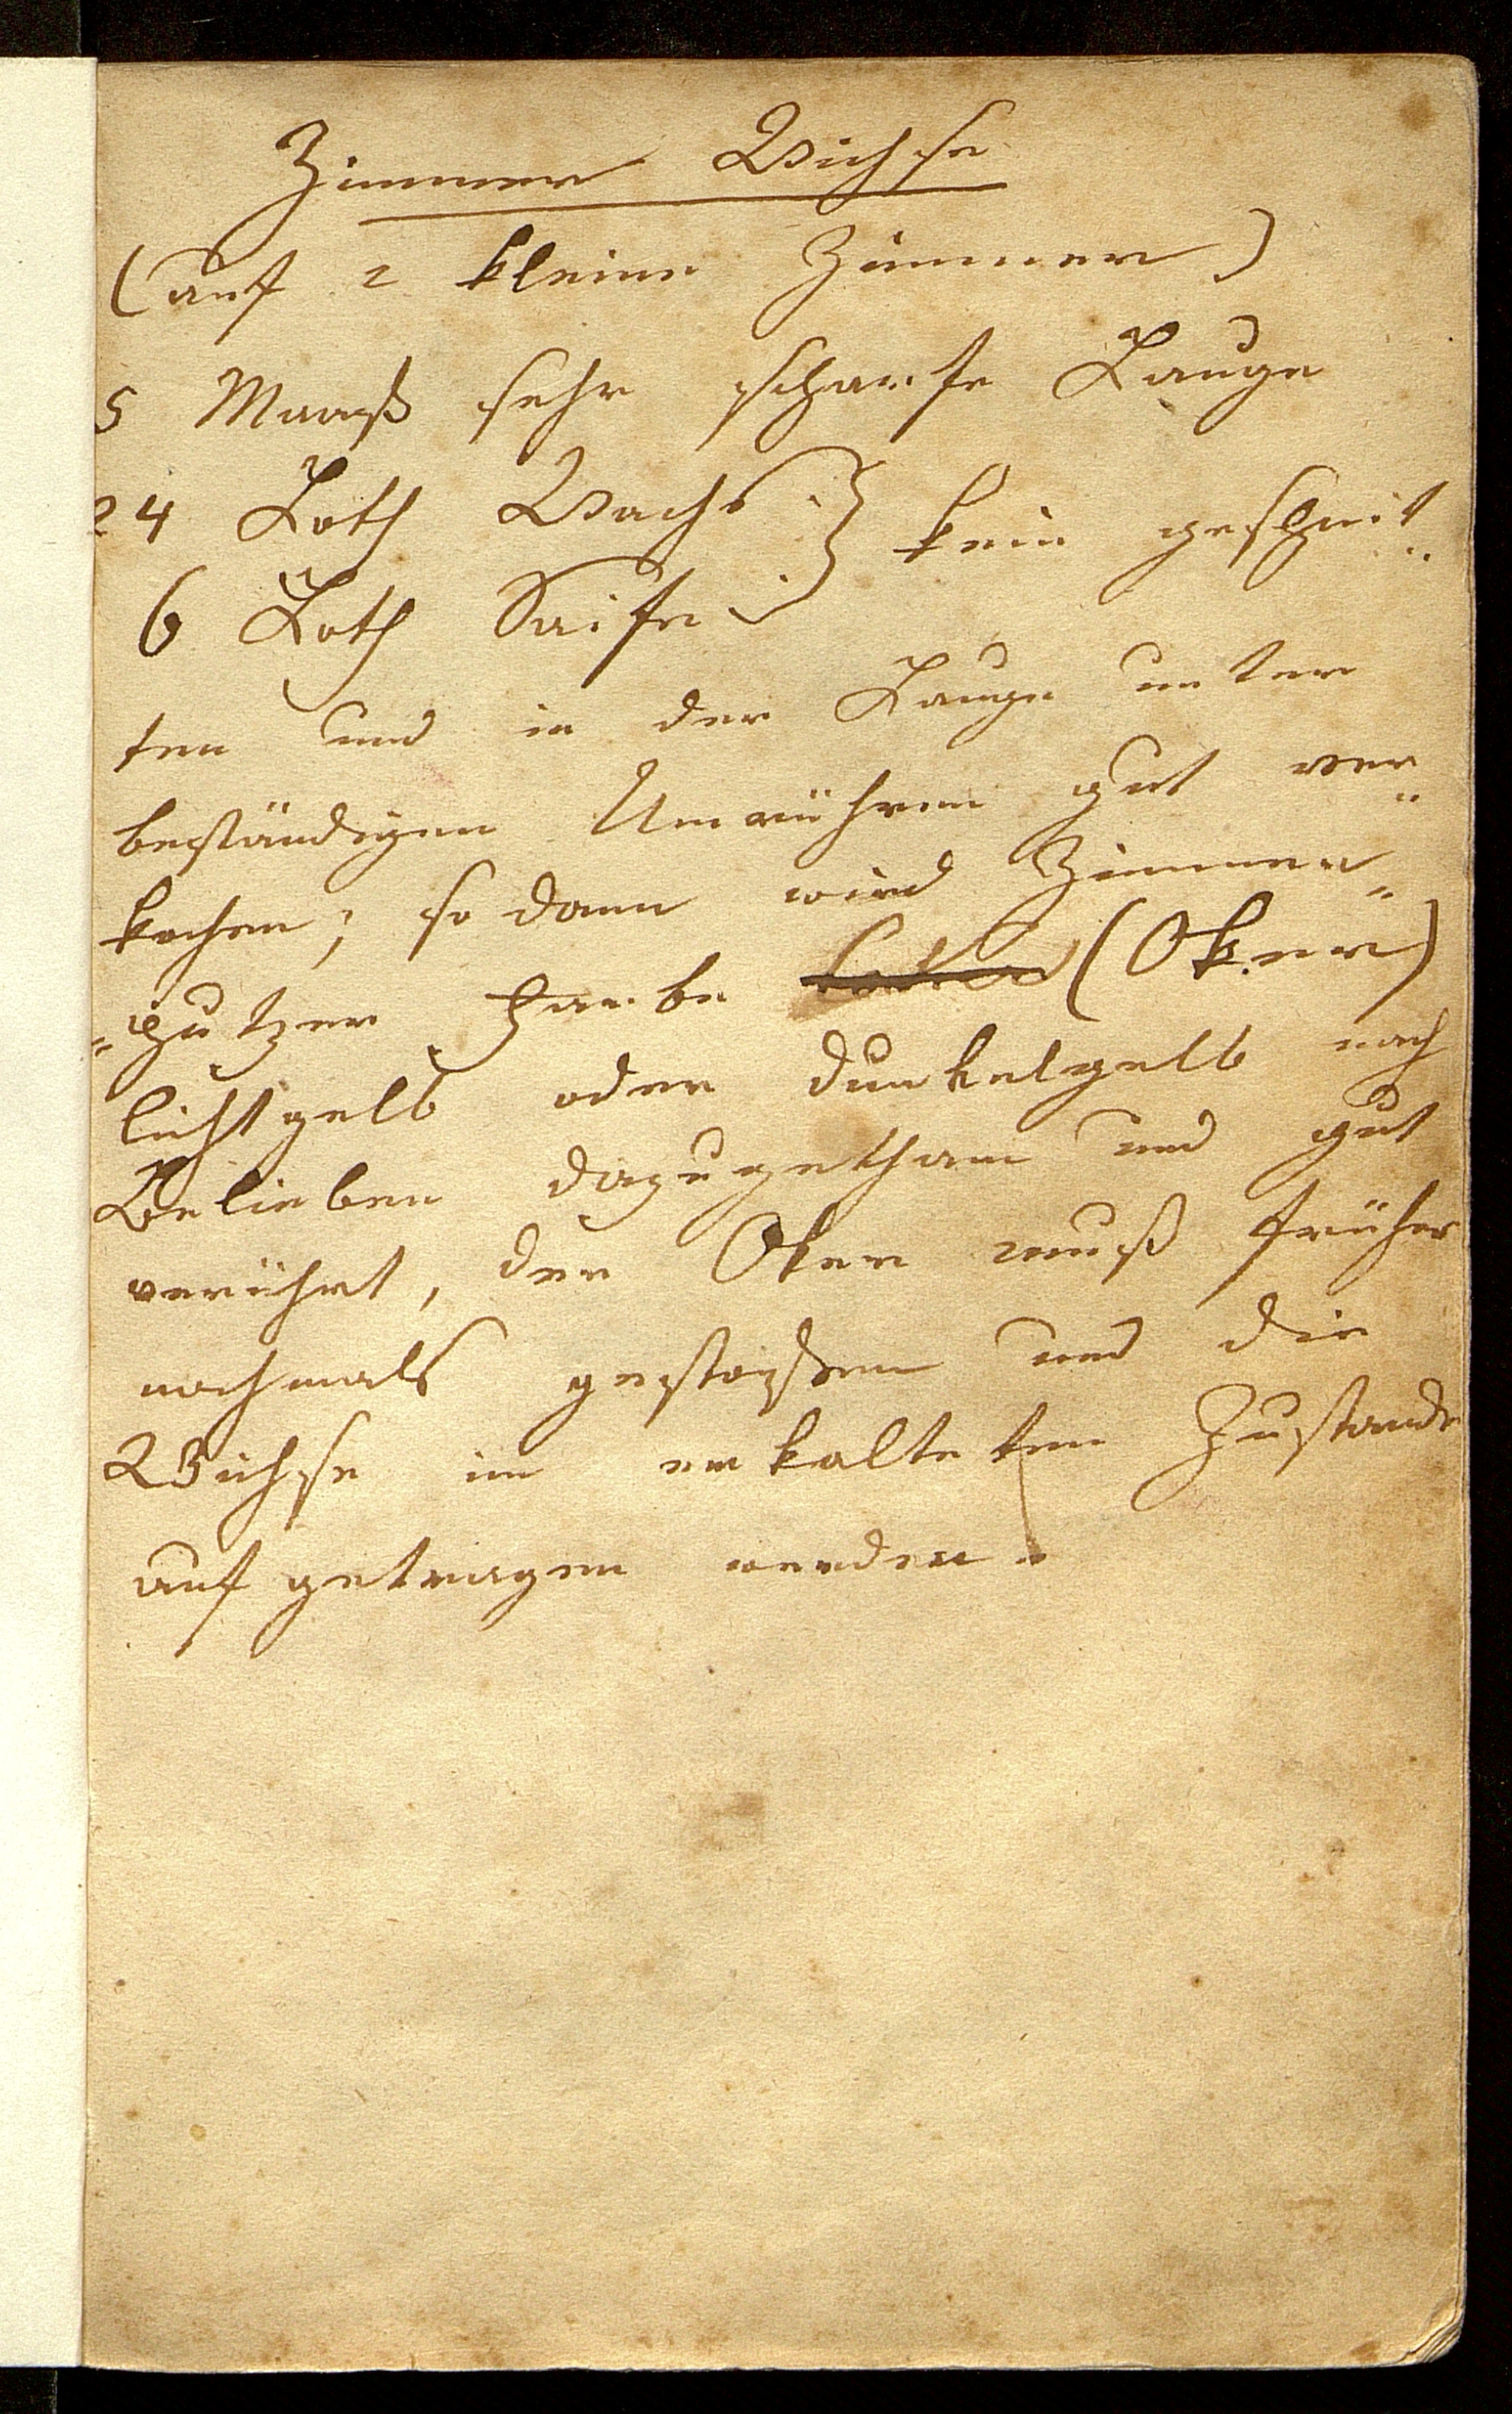 Zimmer Wichse
(auf 2 kleine Zimmer)
5 Maaß sehr scharfe Lauge
24 Loth Wachs } klein geschnit„
6 Loth Saife
ten und in der Lauge unter
beständigen Umrühren gut ver„
kochen; so dann wird Zimmer„
„putzer Farbe (Oker)
lichtgelb oder dunkelgelb nach
Belieben dazugethan und gut
verührt, der Oker muß früher
nochmals gestoßen und die
Wichse im erkalteten Zustande
auf getragen werden.